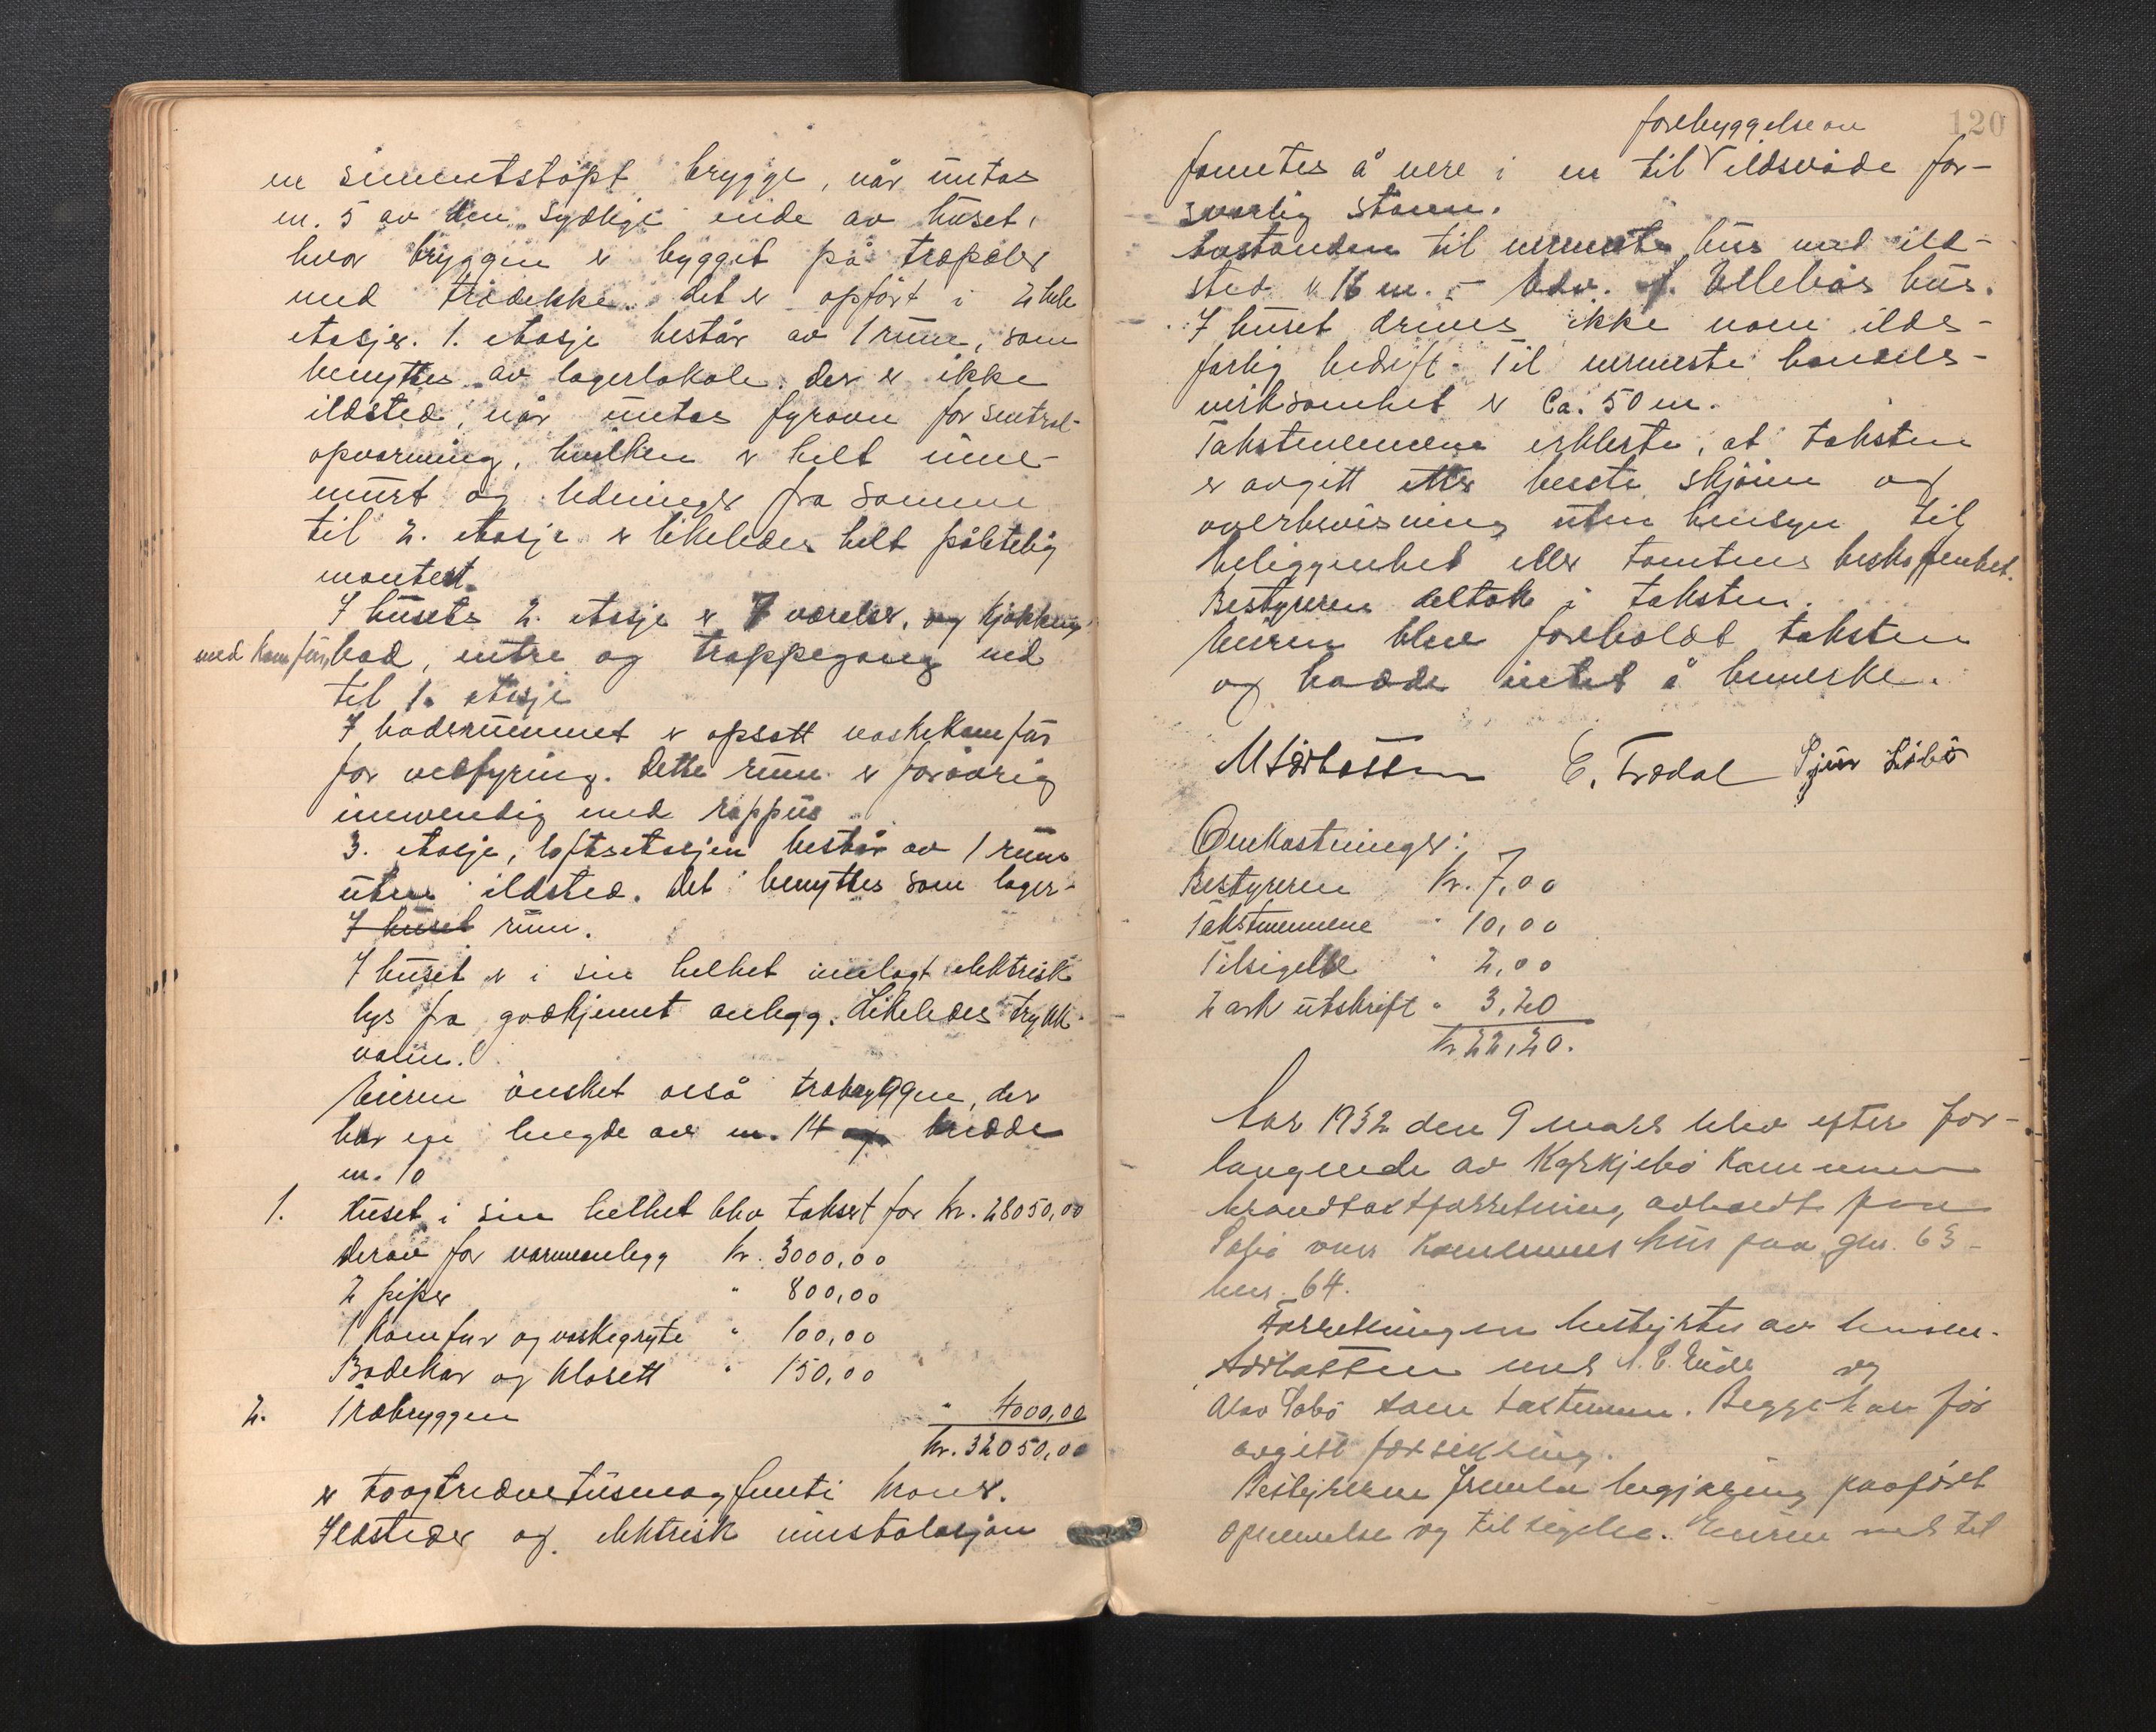 en simentstöpt brygge, når untas
m. 5 av den sydlige ende av huset,
hvor bryggen er bygget på træpeler
med trædekke. det er opfört i 2 hele
etasjer. 1. etasje består av 1 rum, som
benyttes av lagerlokale. der er ikke
ildsted, når untas fyrovn for sentral-
opvarming, hvilken er helt inne-
murt og ledninger fra samme
til 2. etasje er likeledes helt pålitelig
montert.
I husets 2. etasje er 7 værelser, og kjökken
med komfur, bad, entre og trappegang ned
til 1. etasje
I baderummet er opsatt vaskekomfur
for vedfyring. Dette rum er forövrig
innvendig med rappus
3. etasje, loftsetasjen består av 1 rum
uten ildsted. Det benyttes som lager-
I huset rum.
I huset er i sin helhet innlagt elektrisk
lys fra godkjennt anlegg. Likeledes trykk-
vann.
Eieren önsket også træbryggen, der
har en lengde av m. 14 og bredde
m. 10
1. Huset i sin helhet blev taksert for kr. 28050,00
derav for varmeanlegg kr. 3000,00
2 piper " 800,00
1 komfur og vaskegryte " 100,00
Badekar og klosett " 150,00
2. Træbryggen " 4000,00
kr. 32050,00
er toogtredvetusenogfemti kroner.
Ildsteder og elektrisk innstalasjon
120
forebyggelse av
fanntes å være i en til ildsvåde for-
svarlig stann.
Avstanden til nærmeste hus med ild-
sted er 16 m. - Edv. J. Ellebös hus.
I huset drives ikke noen ilds-
farlig bedrift. Til nærmeste handels-
virksomhet er Ca. 50 m.
Takstmennene erklærte, at taksten
er avgitt etter beste skjönn og
overbevisning uten hensyn til
beliggenhet eller tomtens beskaffenhet.
Bestyreren deltok i taksten.
Eieren blev foreholdt taksten
og hadde intet å bemerke.
M Sørbotten E. Trædal Sjur Libö
Omkostninger:
Bestyreren kr. 7,00
Takstmennene " 10,00
Tilsigelse " 2,00
2 ark utskrift " 3,20
kr. 22,20.
Aar 1932 den 9 mars blev efter for-
langende av Kyrkjebö Kommune
brandtakstforretning avholdt paa
kommunens hus paa gnr. 63
bnr. 64.
Forretningen bestyrtes av lensm.
Sørbotten med A. C. Eide og
Olav som takstmenn. Begge har för
avgitt forsikring.
Bestyreren fremla begjæring paafört
opnevnelse og tilsigelse. Eieren med til